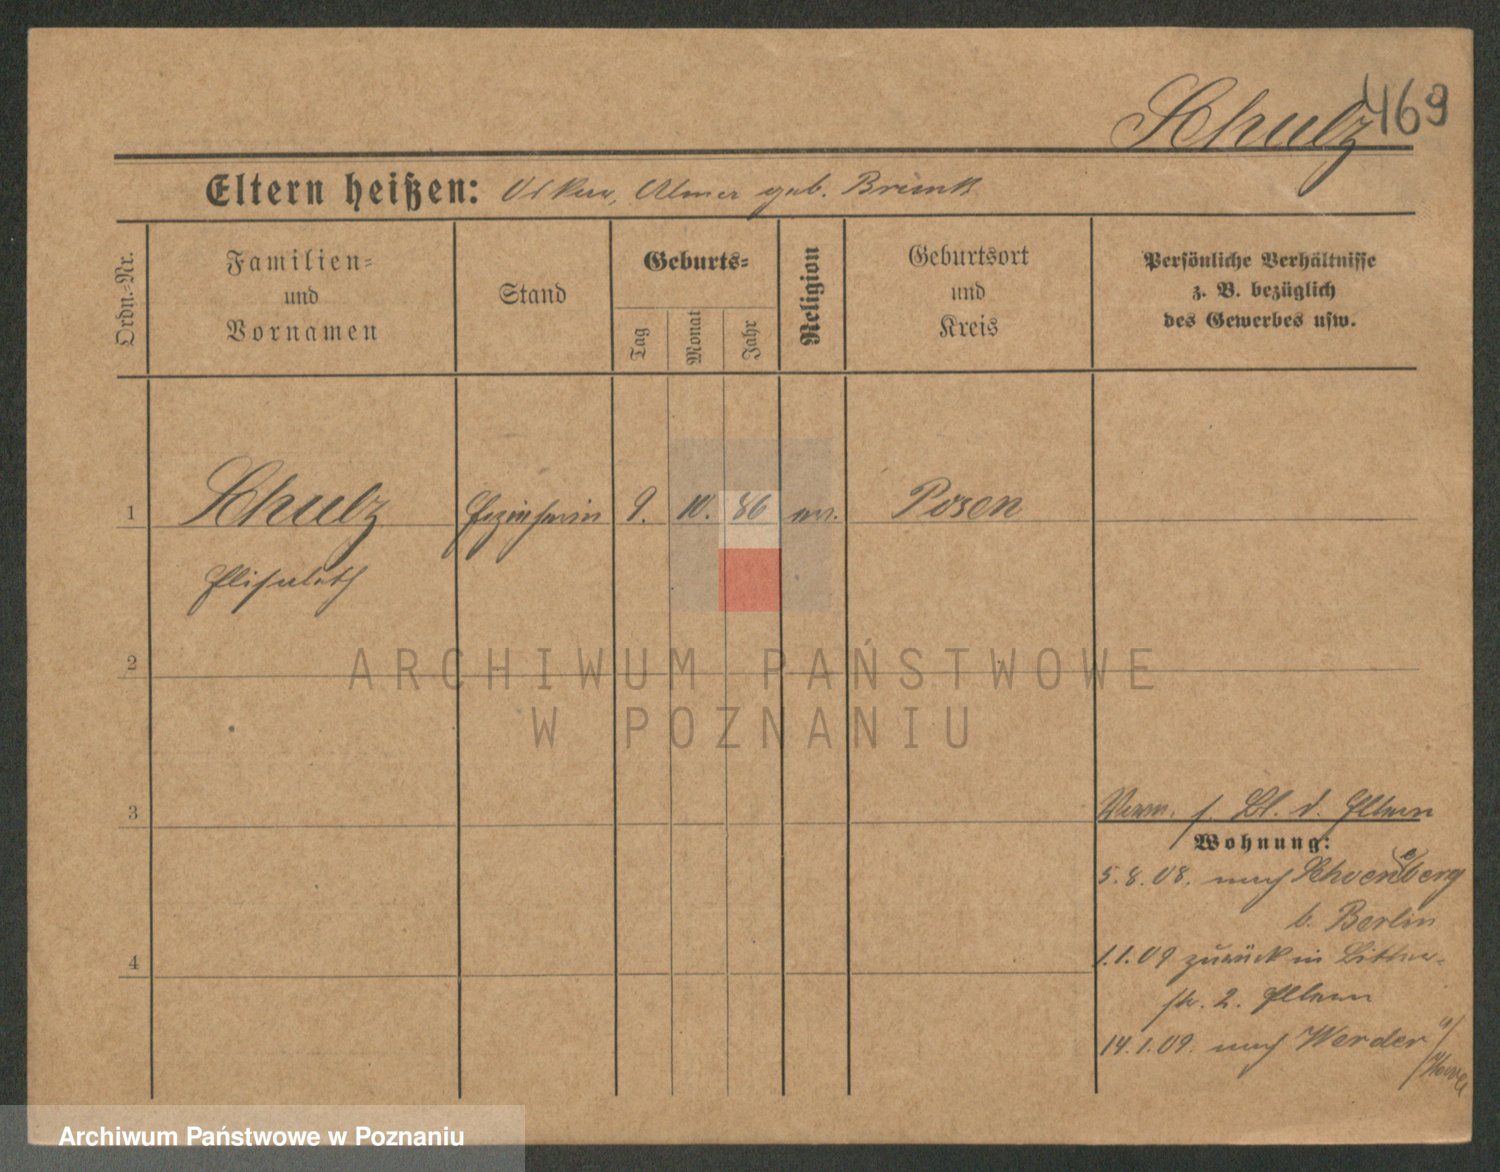 Schulz 469
Eltern heißen: Oskar, Alma geb. Brunk
Ordn.-Nr.
Familien-
und
Vornamen
Stand
Geburts-
Tag
Monat
Jahr
Religion
Geburtsort
und
Kreis
Persönliche Verhältnisse
z. B. bezüglich
des Gewerbes usw.
1 Schulz Erzieherin 9. 10. 86 ev. Posen
Elisabeth
2
3
Verm. s. Bl. d. Eltern
Wohnung:
5.8.08. nach Schoeneberg
b. Berlin
4
1.1.09 zurück in
str. 2. Eltern
14.1.09. nach Werder a/
Havel
ARCHIWUM PAŃSTWOWE
W POZNANIU
Archiwum Państwowe w Poznaniu